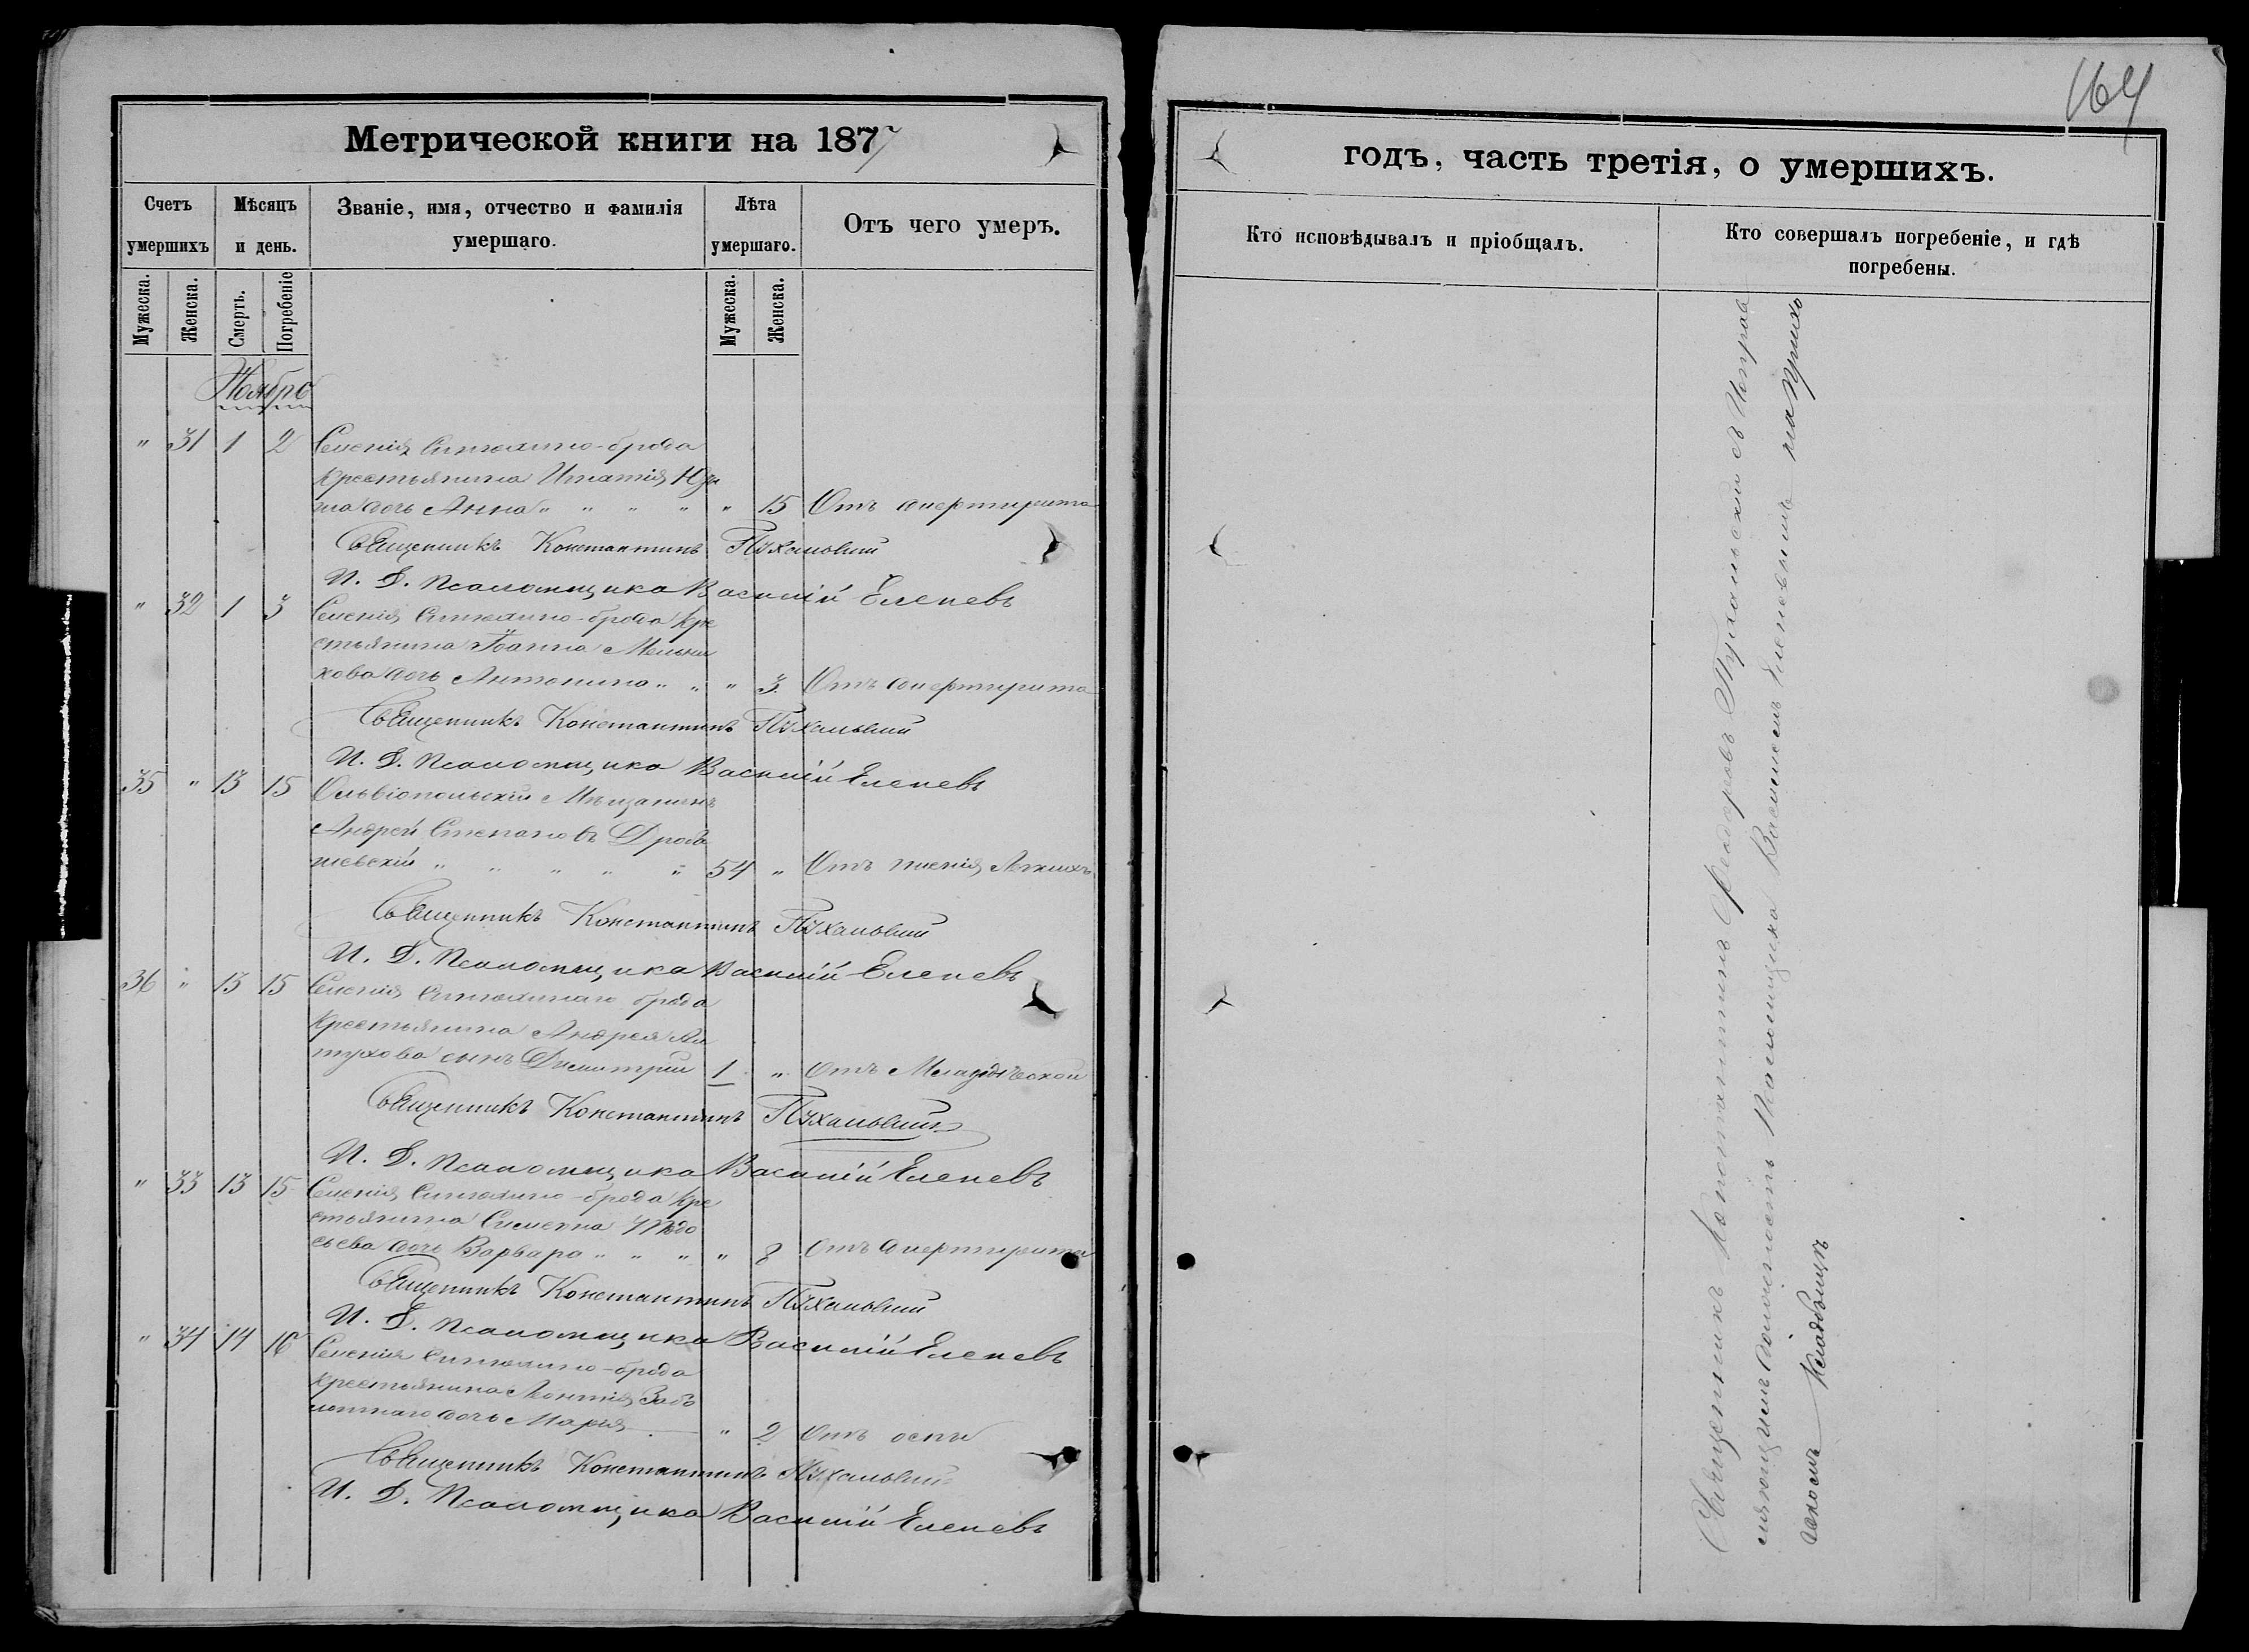 164
Метрической книги на 1877
годъ, часть третія, о умершихъ.
Счетъ умершихъ
Мѣсяцъ и день.
Званіе, имя, отчество и фамилія умершаго.
Лѣта умершаго.
Отъ чего умеръ.
Кто исповѣдывалъ и пріобщалъ.
Кто совершалъ погребеніе, и гдѣ погребены.
Мужеска.
Женска.
Смерть.
Погребеніе
Мужеска.
Женска.
Ноябрь
" 31 1 2 Селенія Синюхино-брода
крестьянина Игнатія
на дочь Анна " " " " " 15 Отъ дифтерита
Священникъ Константинъ Пухальскій
И. Д. Псаломщика Василій Еленевъ
" 32 1 3 Селенія Синюхино-брода кре
стьянина Іоанна Мельни
кова дочь Антонина " " " 3 Отъ дифтерита
Священникъ Константинъ Пухальскій
И. Д. Псаломщика Василій Еленевъ
35 " 13 15 Ольвіопольскій Мѣщанинъ
Андрей Степановъ
" " " " " 54 " Отъ тленія Легкихъ
Священникъ Константинъ Пухальскій
И. Д. Псаломщика Василій Еленевъ
36 " 13 15 Селенія Синюхинаго брода
крестьянина Андрея
сынъ Димитрій 1 " Отъ Младенческой
Священникъ Константинъ Пухальскій
И. Д. Псаломщика Василій Еленевъ
" 33 13 15 Селенія Синюхино-брода кре
стьянина Симеона
дочь Варвара " " " " 8 Отъ дифтерита
Священникъ Константинъ Пухальскій
И. Д. Псаломщика Василій Еленевъ
" 34 14 16 Селенія Синюхино-брода
крестьянина Леонтія Заб
лотнаго дочь Марія " 2 Отъ оспы
Священникъ Константинъ Пухальскій
И. Д. Псаломщика Василій Еленевъ
Священникъ Константинъ Федоровъ Пухальскій съ Исправ
ляющимъ должность Псаломщика Василіемъ Еленевымъ на Прихо
дскомъ Кладбищѣ